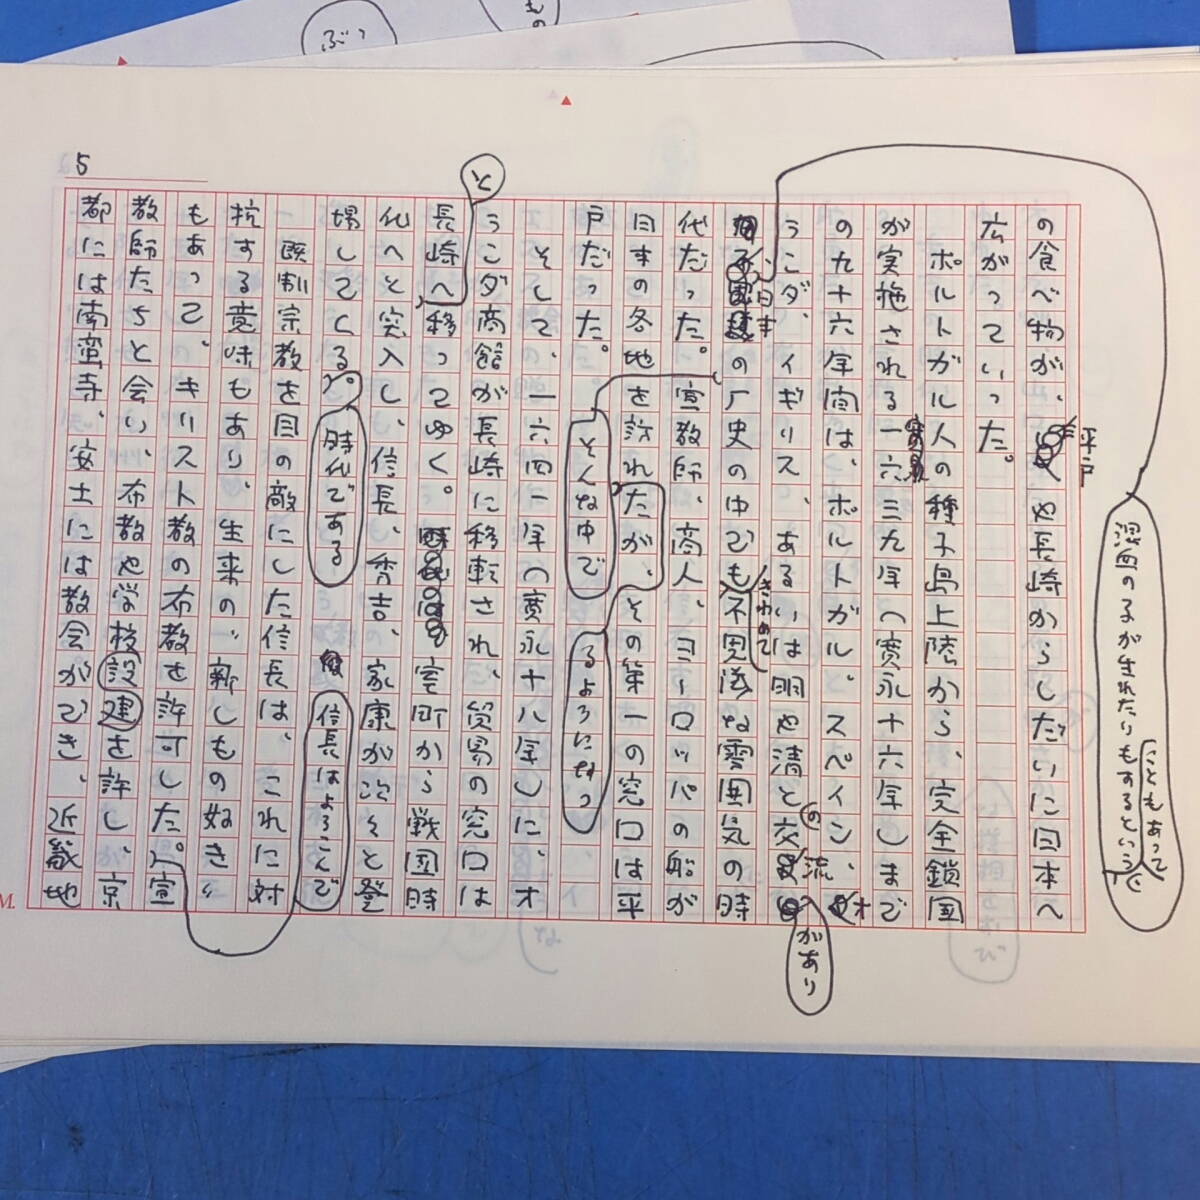 5
の食べ物が、平戸や長崎からしだいに日本へ
広がっていった。
ポルトガル人の種子島上陸から、完全鎖国
が実施される一六三九年へ寛永十六年しまで
の九十六年間は、ポルトガル、スペイン、オ
ランダ、イギリス、あるいは明や清との交流があり
混血の子が生れたりもするということもあって
、日本の歴史の中でもきわめて不思議な雰囲気の時
代だった。宣教師、商人、ヨーロッパの船が
日本の各地を訪れるようになった。そんな中で、その第一の窓口は平
戸だった。
そして、一六四一年へ寛永十八年しに、オ
ランダ商館が長崎に移転され、貿易の窓口は
長崎へと移ってゆく。室町から戦国時
代へと突入し、信長、秀吉、家康が次々と登
場してくる時代である。
既制宗教を目の敵にした信長は、これに対
抗する意味もあり、生来の〝新しもの好き〟
もあって、キリスト教の布教を許可した。信長はよろこんで宣
教師たちと会い、布教や学校建設を許し、京
都には南蛮寺、安土には教会ができ、近畿地
ぶっ
もの
M.